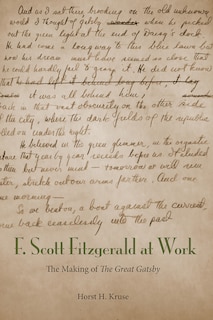 And as I sat there brooding on the old unknown
world I thought of Gatsby when he picked
out the green light at the end of Daisy's dock
He had come a long way to this blue lawn but
now his dream must have seemed so close that
he could hardly fail to grasp it. He did not know
that
it was all behind him,
back in that vast obscurity on the other side
of the city, where the dark fields of the republic
rolled on under the night.
He believed in the green glimmer, in the orgastic
future that year by year recedes before us. It eluded
us then but never mind — tomorrow we will run
faster, stretch out our arms farther. And one
fine morning —
So we beat on, a boat against the current,
borne back ceaselessly into the past
F. Scott Fitzgerald at Work
The Making of The Great Gatsby
Horst H. Kruse